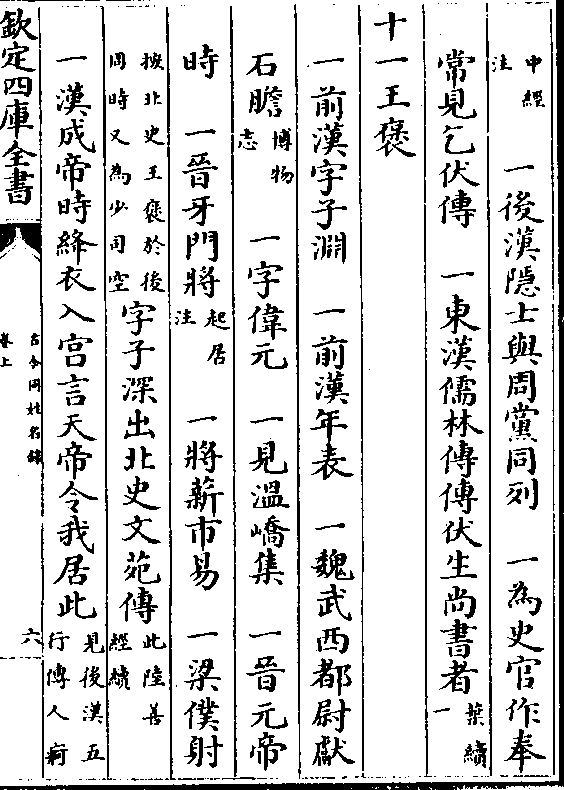 中經注　一後漢隱士與周黨同列　一為史官作奉
常見乞伏傳　一東漢儒林傳傳伏生尚書者葉續一
十一王褒
一前漢字子淵　一前漢年表　一魏武西都尉獻
石膽博物志　一字偉元　一見溫嶠集　一晉元帝
時　一晉牙門將起居注　一將薪市易　一梁僕射
按北史王褒於後周時又為少司空字子深出北史文苑傳此陸善經續
一漢成帝時絳衣入宮言天帝令我居此見後漢五行傳人痾
欽定四庫全書
古今同姓名錄
卷上
六